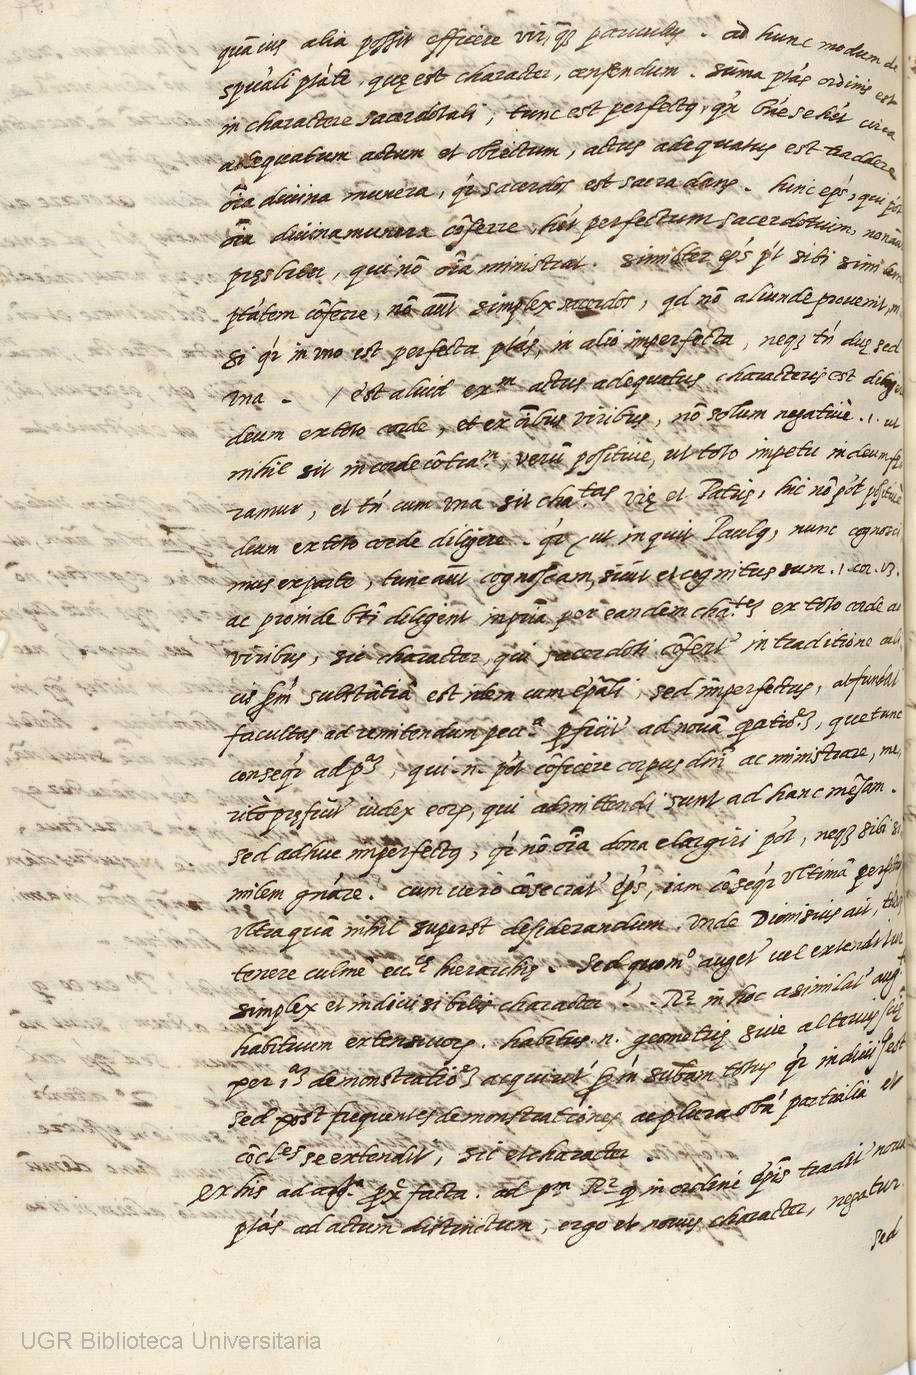 quā ius alia possit efficere vir, q̄ȝ parvulus . ad hunc modum de
spūali ptāte, quę est character, censendum . Sūma ptās ordinis est
in charactere sacerdotali, tunc est perfectꝰ, qn̄ bn̄e se hēt circa
adequatum actum et obiectum, actus adequatus est traddere
oīa divina munera, qr̄ sacerdos est sacra dans . hinc ep̄s, qui pōt
oīa divina munera cōferre hēt perfectum sacerdotium, non aūt
pręsbiter, qui nō oīa ministrat . similiter ep̄s pōt sibi similem
ptātem cōferre, nō aūt simplex sacerdos, qd nō aliunde provenit, n
si qr̄ in uno est perfecta ptās, in alio imperfecta, neqȝ tn̄ duę sed
una . / est aliud exᵐ actus adequatus characteris est dilige
deum ex toto corde, et ex oībus viribus, nō solum negativè .i. ut
nihil sit in corde cōtraᵐ, verū positivè, ut toto impetu in deum fe
ramur, et tn̄ cum una sit chaᵗᵃˢ vię et Patrię, hic nō pōt positivè
deum ex toto corde diligere . qr̄ ut inquit Paulꝰ, nunc cognosci
mus ex parte, tunc aūt cognoscam, sicut et cognitus sum . 1. cor. 13.
ac proinde bt̄i diligent in pr̄ia per eandem chaᵗᵉȝ ex toto corde ac
viribus, sic character, qui sacerdoti cōfertʳ in traditione cali
cis s̄m substātiā est idem cum ep̄ali, sed imperfectus, at subinde
facultas ad remitendum peccᵃ perficitʳ ad novā oper̄atioᵉȝ, que tunc
conseqr̄ ad pᵃȝ, qui .n. pōt cōficere corpus dn̄i ac ministrare, me
ritò pręficitʳ iudex eorꝫ, qui admittendi sunt ad hanc mēsam .
sed adhuc imperfectꝰ, qr̄ nō oīa dona elargiri pōt, neqȝ sibi si
milem gn̄are . cum vero cōsecratʳ ep̄s, iam cōseqr̄ ultimā perfectio
ultra quā nihil superst desiderandum . Unde Dionisius ait,
tenere culmē eccᵉˢ hierarchię . Sed quomᵒ augetʳ vel extenditur
simplex et indivisibilis character ? . Rᵈ in hoc asimilatʳ augᵗ
habituum extensivorꝫ . habitus .n. geometrię sive alterius sciᵉ
per 1ᵃȝ demonstratioᵉȝ acquiritʳ s̄m subs̄tam totus qr̄ indivisˡⁱˢ est
sed post frequentes demonstrationes ac plura obta partialia et
cōclᵉˢ se extendit, sic et character .
ex his ad argᵃ p̄ᵒ facta . ad pᵐ Rᵈ q̄ in ordine ep̄is traditʳ nova
ptās ad actum distinctum, ergo et novus character, negatur
sed
UGR Biblioteca Universitaria